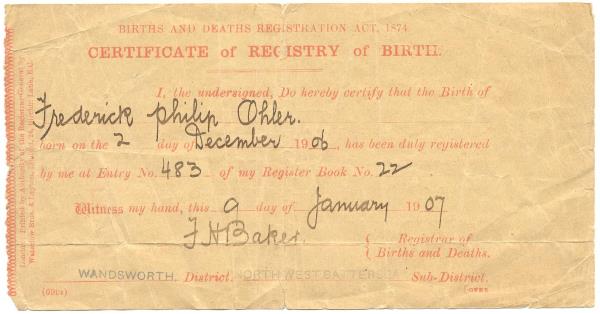 BIRTHS AND DEATHS REGISTRATION ACT, 1874
CERTIFICATE of REGISTRY of BIRTH.
I, the undersigned, Do hereby certify that the Birth of
Frederick Philip Ohler.
born on the 2 day of December 1906, has been duly registered
by me at Entry No. 483 of my Register Book No. 22
Witness my hand, this 9 day of January 1907
F H Baker. { Registrar of
Births and Deaths.
WANDSWORTH. District. NORTH WEST BATTERSEA Sub-District.
OVER
London: Printed by Authority of the Registrar-General by
Waterlow Bros. &